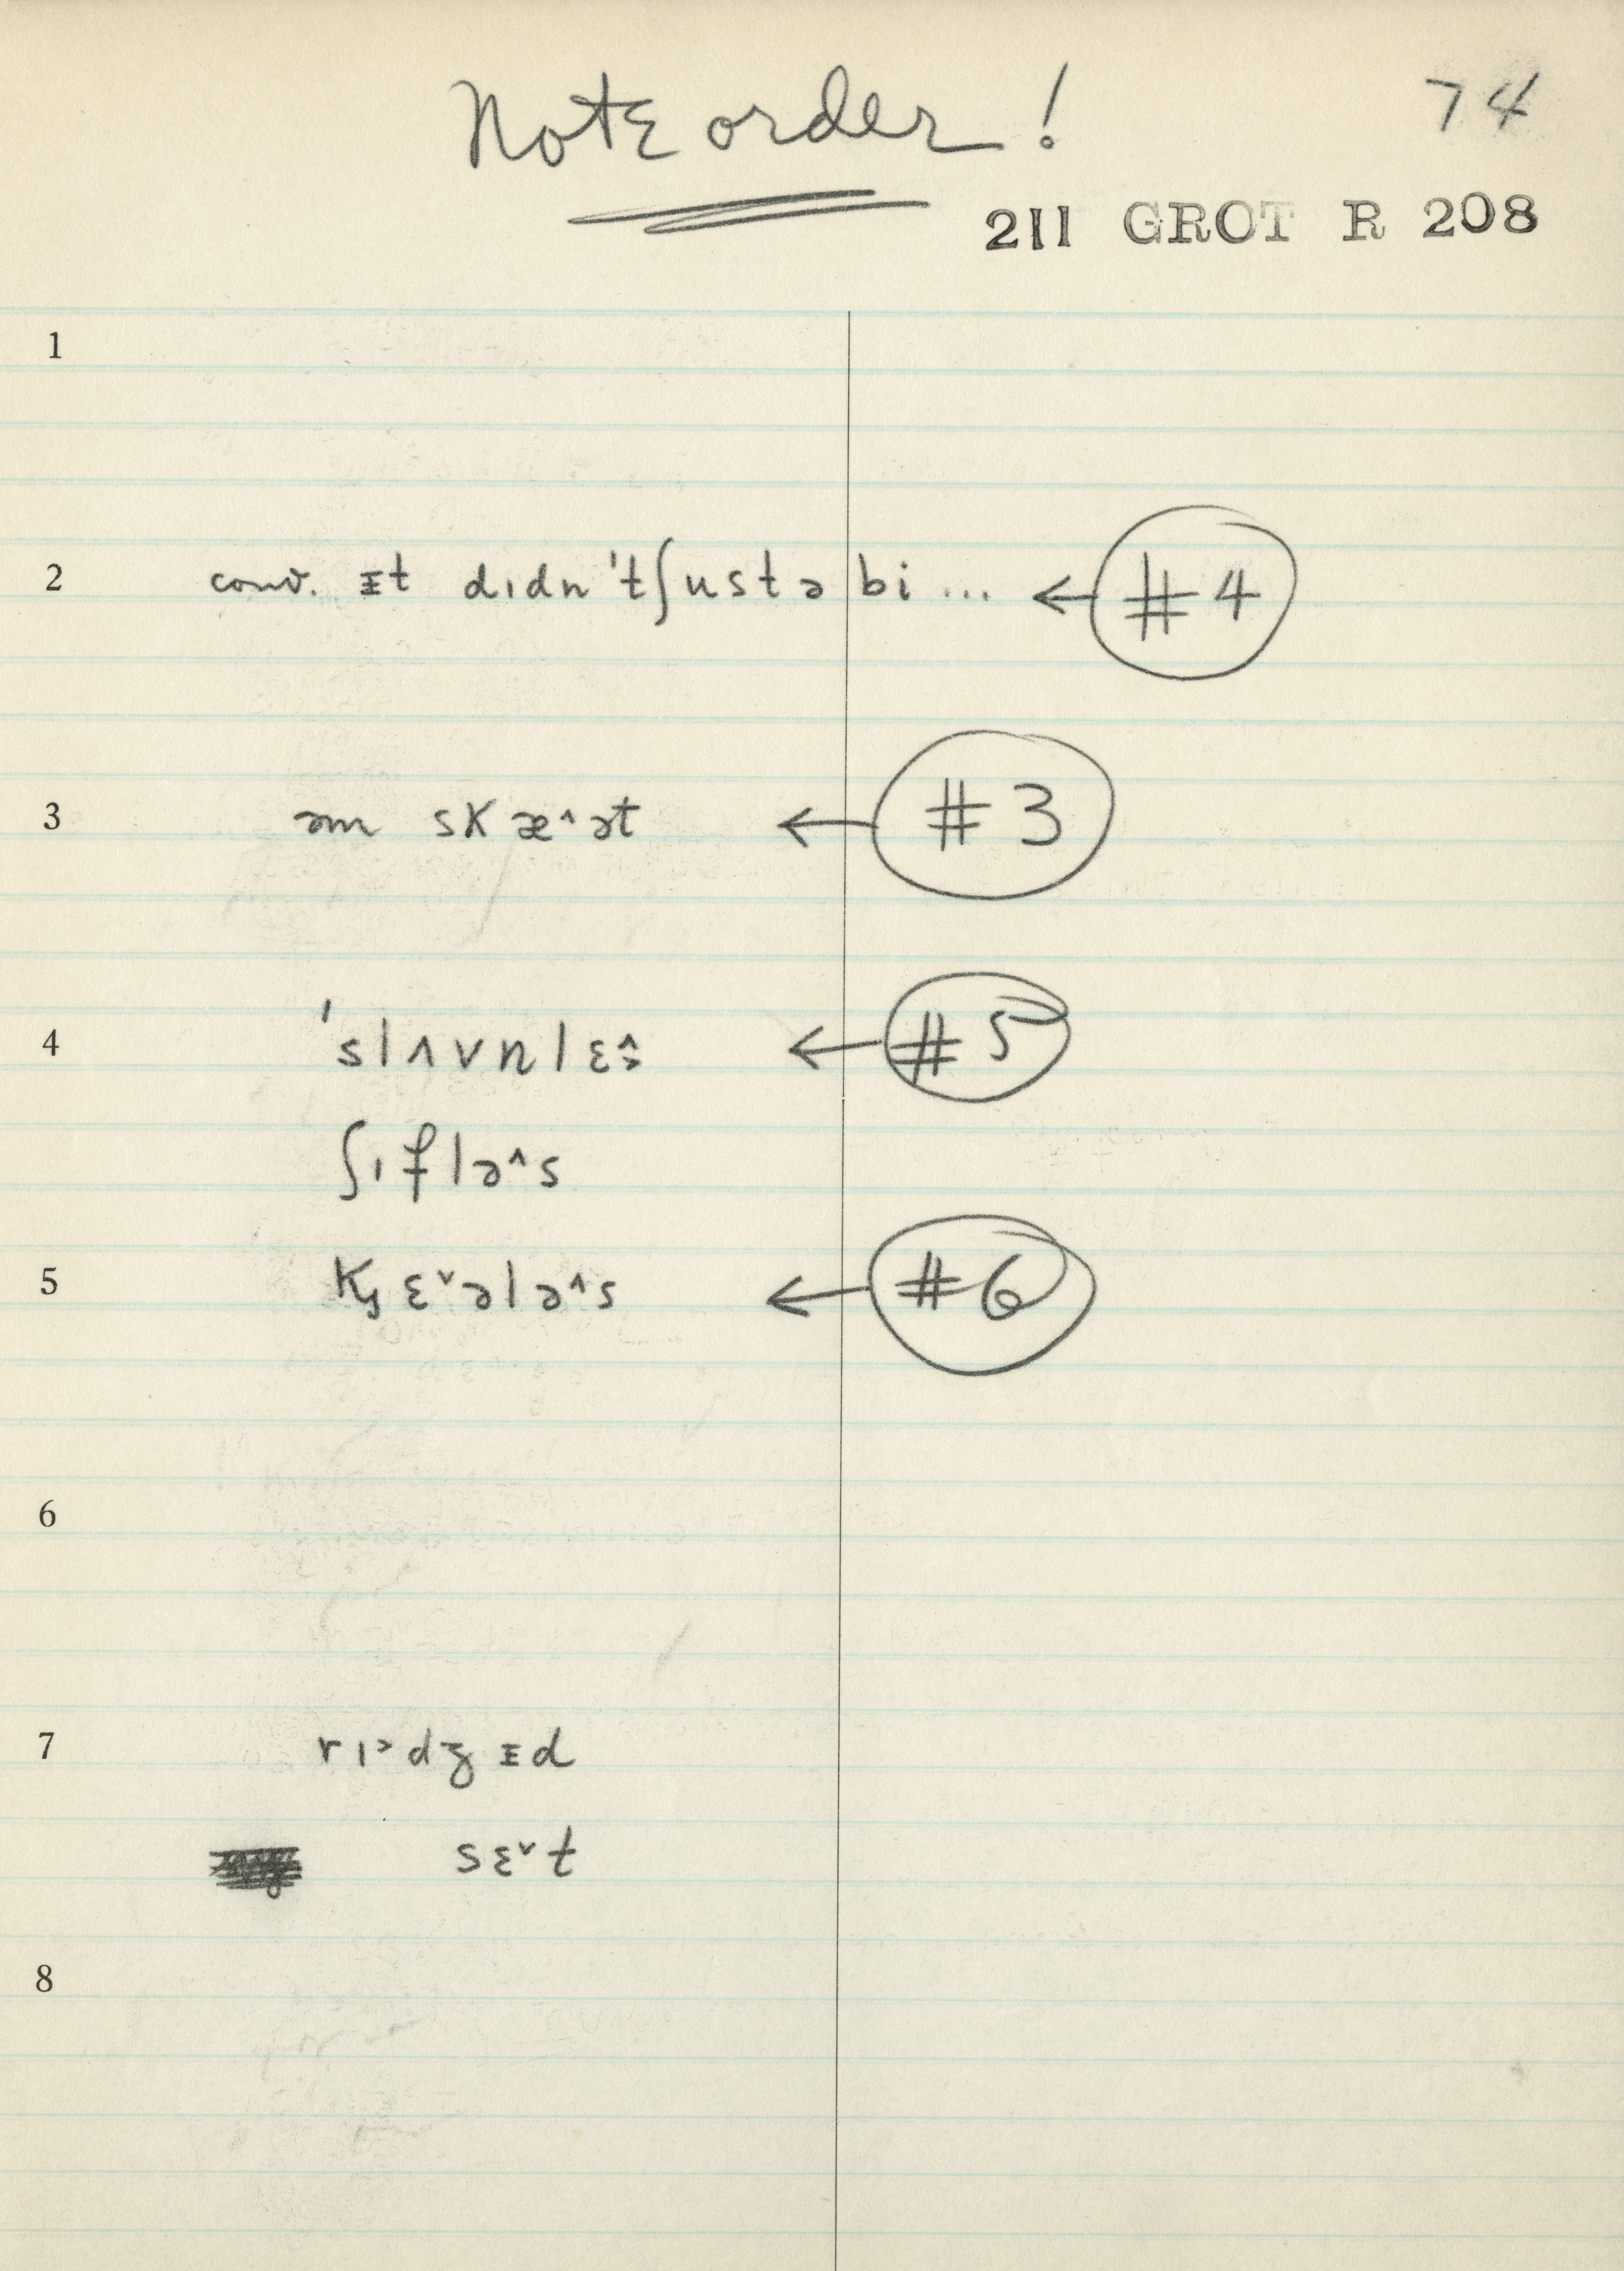 Note order! 74
211 GROT R 208
1
2 conv. ɪt dıdn'tʃustə bi... ← #4
3 əm skæ^ət ← #3
4 'slʌvnlɛ ← #5
ʃıflə^s
5 Kʂɛˇələ^s ← #6
6
7 rı>dʒɪd
sɛˇt
8